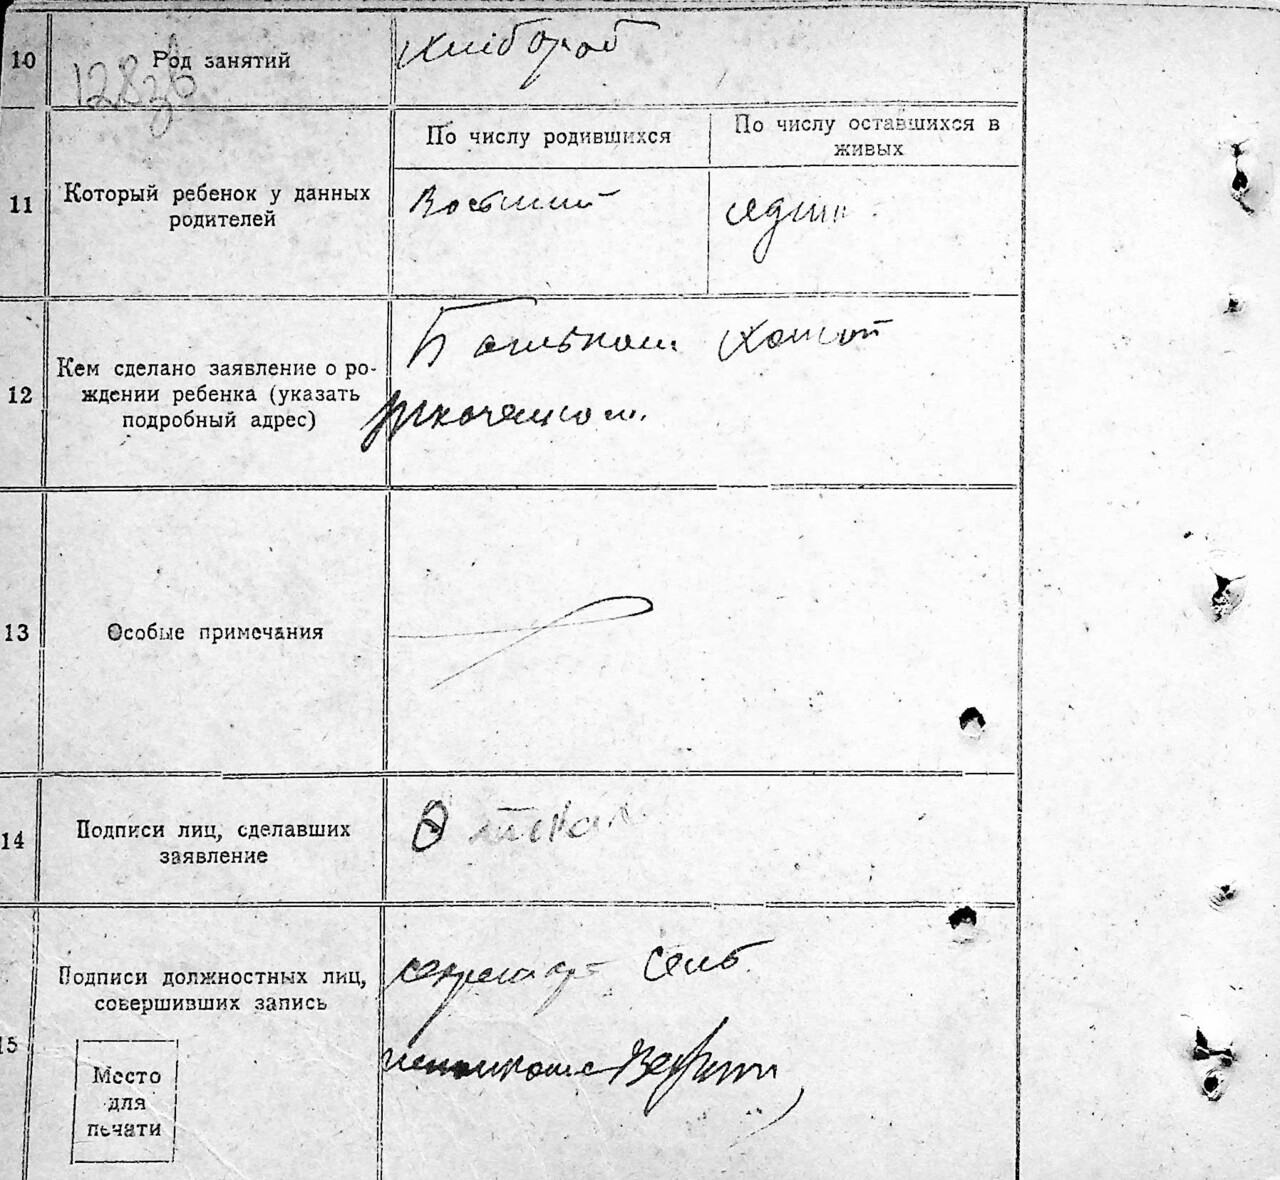 10
Род занятий
хлібороб
По числу родившихся
По числу оставшихся в
живых
11
Который ребенок у данных
родителей
Восьмий
один
12
Кем сделано заявление о ро-
ждении ребенка (указать
подробный адрес)
Батьком
13
Особые примечания
14
Подписи лиц, сделавших
заявление
15
Подписи должностных лиц,
совершивших запись
секретар сель
Место
для
печати